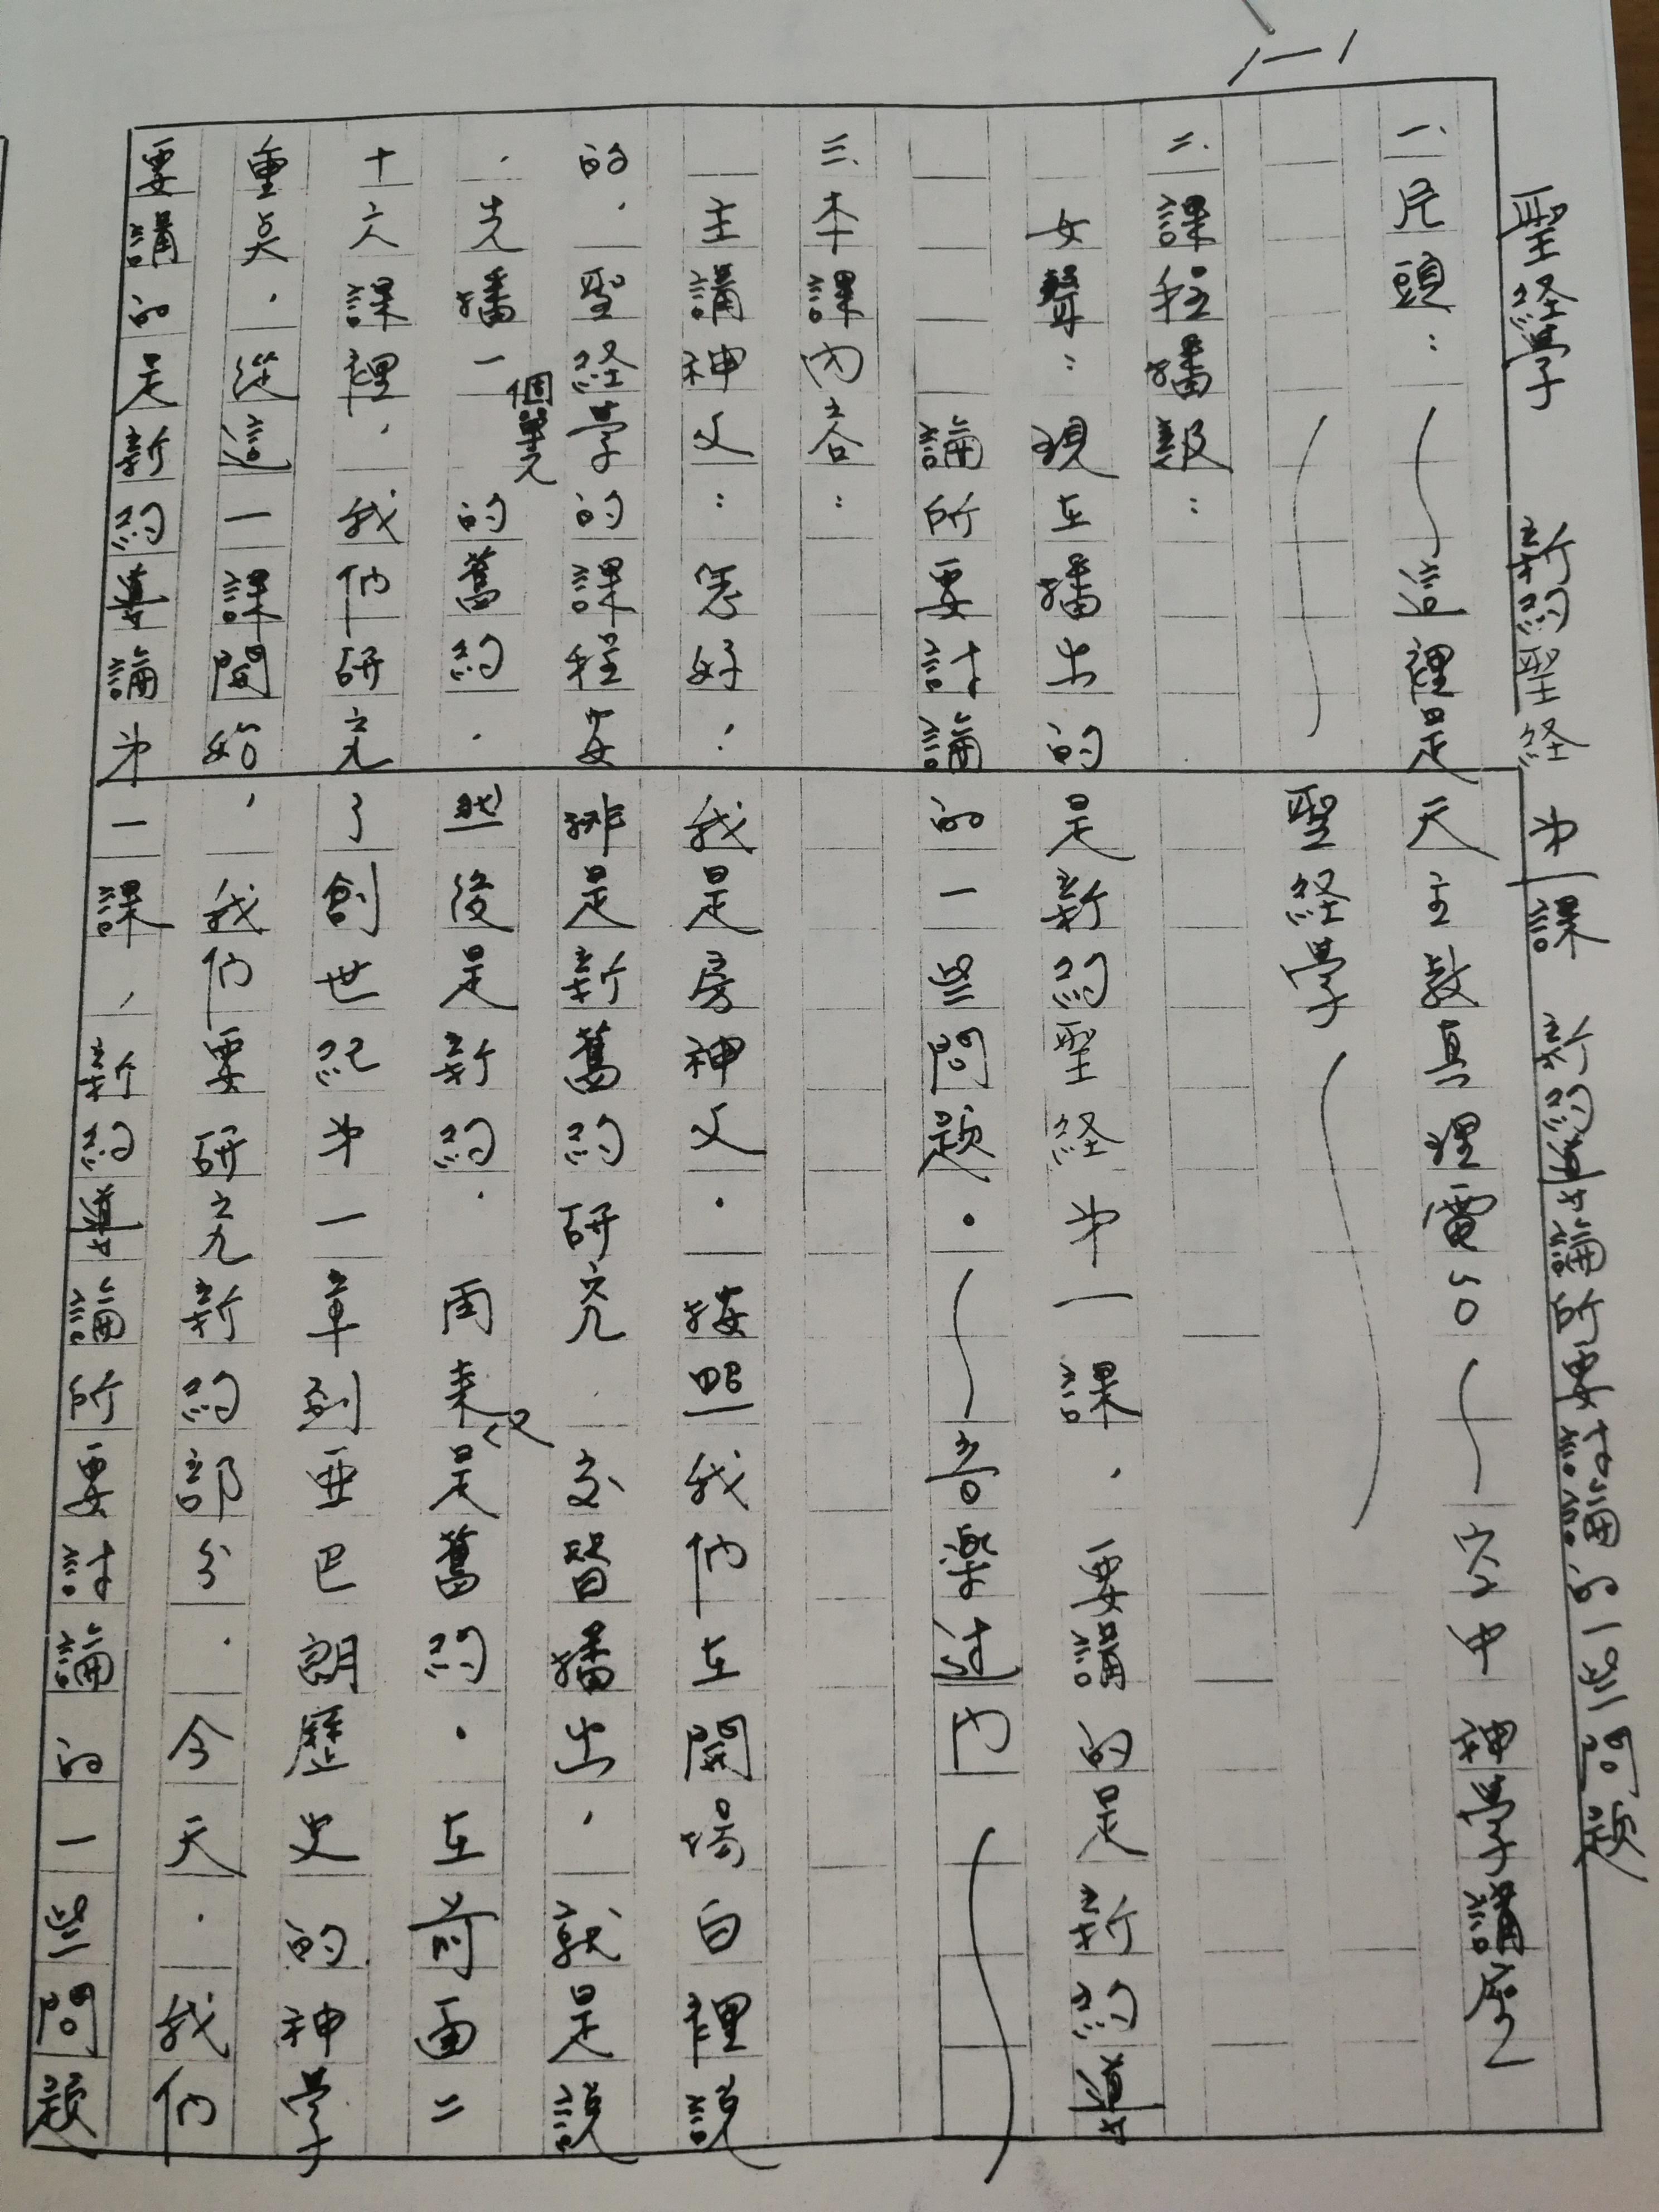 1-1
聖經學 新約聖經 第一課 新約導論所要討論的一些問題
一、片頭：——這裡是天主教真理電台——空中神學講座
——聖經學——
二、課程播報：
女聲：現在播出的是新約聖經第一課，要講的是新約導
論所要討論的一些問題。——音樂結束——
三、本課內容：
主講神父：您好！我是房神父。按照我們在開場白裡說
的，聖經學的課程安排是新舊約研究交替播出，就是說
，先播一個單元的舊約，然後是新約，再來又是舊約。在前面二
十六課裡，我們研究了創世紀第一章到亞巴郎歷史的神學
重點，從這一課開始，我們要研究新約部分。今天，我們
要講的是新約導論第一課，新約導論所要討論的一些問題